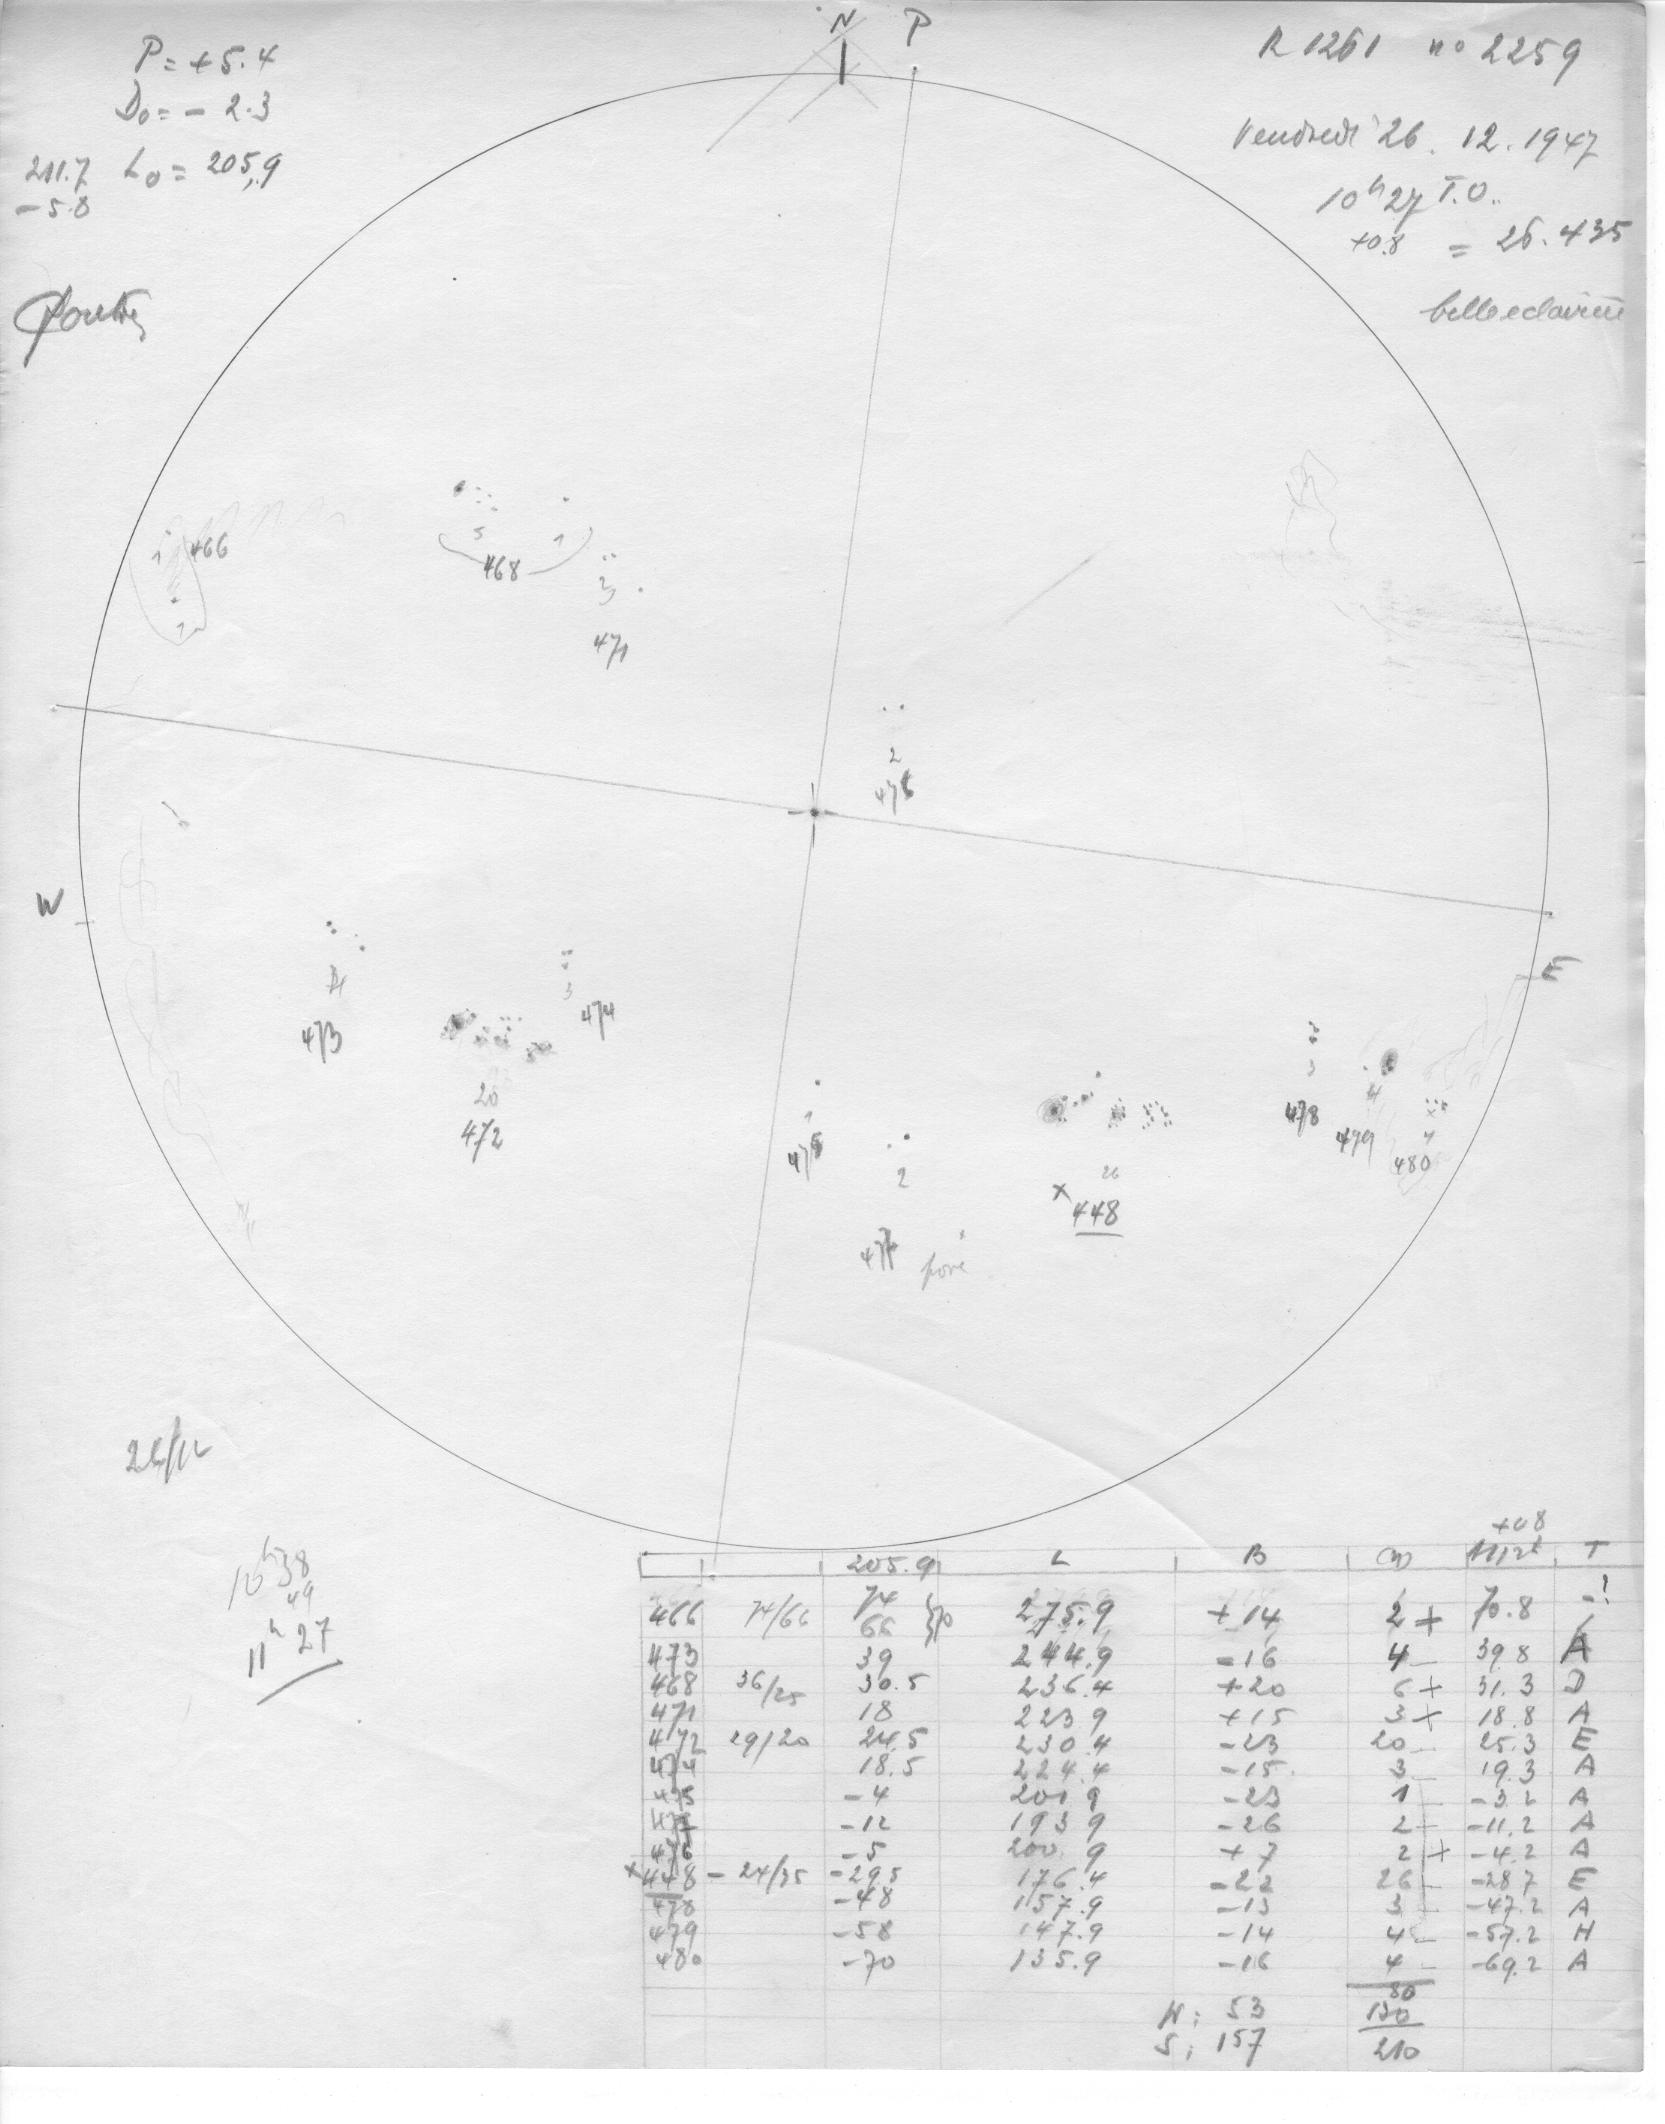 N P
P = +5.4
D₀ = - 2.3
211.7 L₀ = 205,9
- 5.8
R 1261 no 2259
Vendredi 26. 12. 1947
10h27 T.U.
+0.8 = 26.435
belle eclaircie
1 466
1
5 1
468
3
471
2
476
W
E
4
473
3
474
20
472
1
475
2
477
pore
26
x 448
3
478
4
479
4
480
26/12
10h38
49
11h 27
+0.8
205.9 L B T
466 74/66 74 66 }70 275.9 +14 2 + 70.8 -!
473 39 244.9 -16 4 - 39.8 A
468 36/25 30.5 236.4 +20 6 + 31.3 D
471 18 223.9 +15 3 + 18.8 A
472 29/20 24.5 230.4 -23 20 - 25.3 E
474 18.5 224.4 -15 3 - 19.3 A
475 -4 201.9 -23 1 - -3.2 A
477 -12 193.9 -26 2 - -11.2 A
476 -5 200.9 +7 2 + -4.2 A
x 448 - 24/35 -29.5 176.4 -22 26 - -28.7 E
478 -48 157.9 -13 3 - -47.2 A
479 -58 147.9 -14 4 - -57.2 H
480 -70 135.9 -16 4 - -69.2 A
80
N: 53 130
S: 157 210